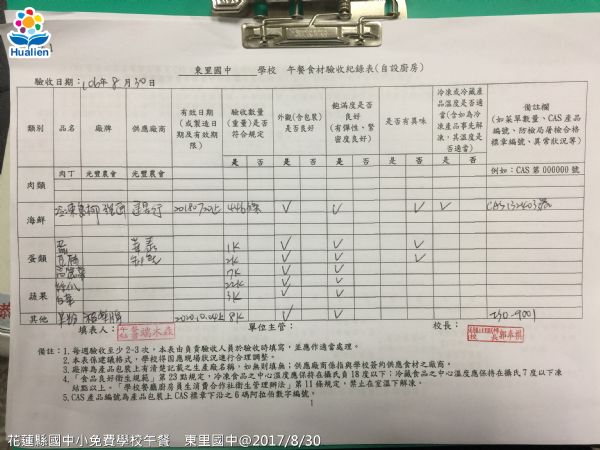 Hualien
東里國中 學校 午餐食材驗收紀錄表(自設廚房)
驗收日期：106年8月30日
類別 品名 廠牌 供應廠商 有效日期(或製造日期及有效期限) 驗收數量(重量)是否符合規定 外觀(含包裝)是否良好 飽滿度是否良好(有彈性、緊密度良好) 是否有異味 冷凍或冷藏產品溫度是否適當(含如為冷凍產品事先解凍，其溫度是否適當) 備註欄(如菜單數量、CAS產品編號、防檢局屠檢合格標章編號、異常狀況等)
是 否 是 否 是 否 是 否 是 否
肉類 肉丁 光豐農會 光豐農會 例如：CAS 第 000000 號
海鮮
蛋類 蛋 1K
豆腐 2K
7K
蔬果 22K
3K
其他 8K
填表人： 單位主管： 校長：
備註：1.每週驗收至少2~3次，本表由負責驗收人員於驗收時填寫，並應作適當處理。
2.本表係建議格式，學校得因應現場狀況進行合理調整。
3.廠牌為產品包裝上有清楚記載之生產廠名稱，如無則填無；供應廠商係指與學校簽約供應食材之廠商。
4.「食品良好衛生規範」第23點規定，冷凍食品之中心溫度應保持在攝氏負18度以下；冷藏食品之中心溫度應保持在攝氏7度以下凍
結點以上。「學校餐廳廚房員生消費合作社衛生管理辦法」第11條規定，禁止在室溫下解凍。
5.CAS產品編號為產品包裝上CAS標章下沿之6碼阿拉伯數字編號。
1
花蓮縣國中小免費學校午餐 東里國中@2017/8/30